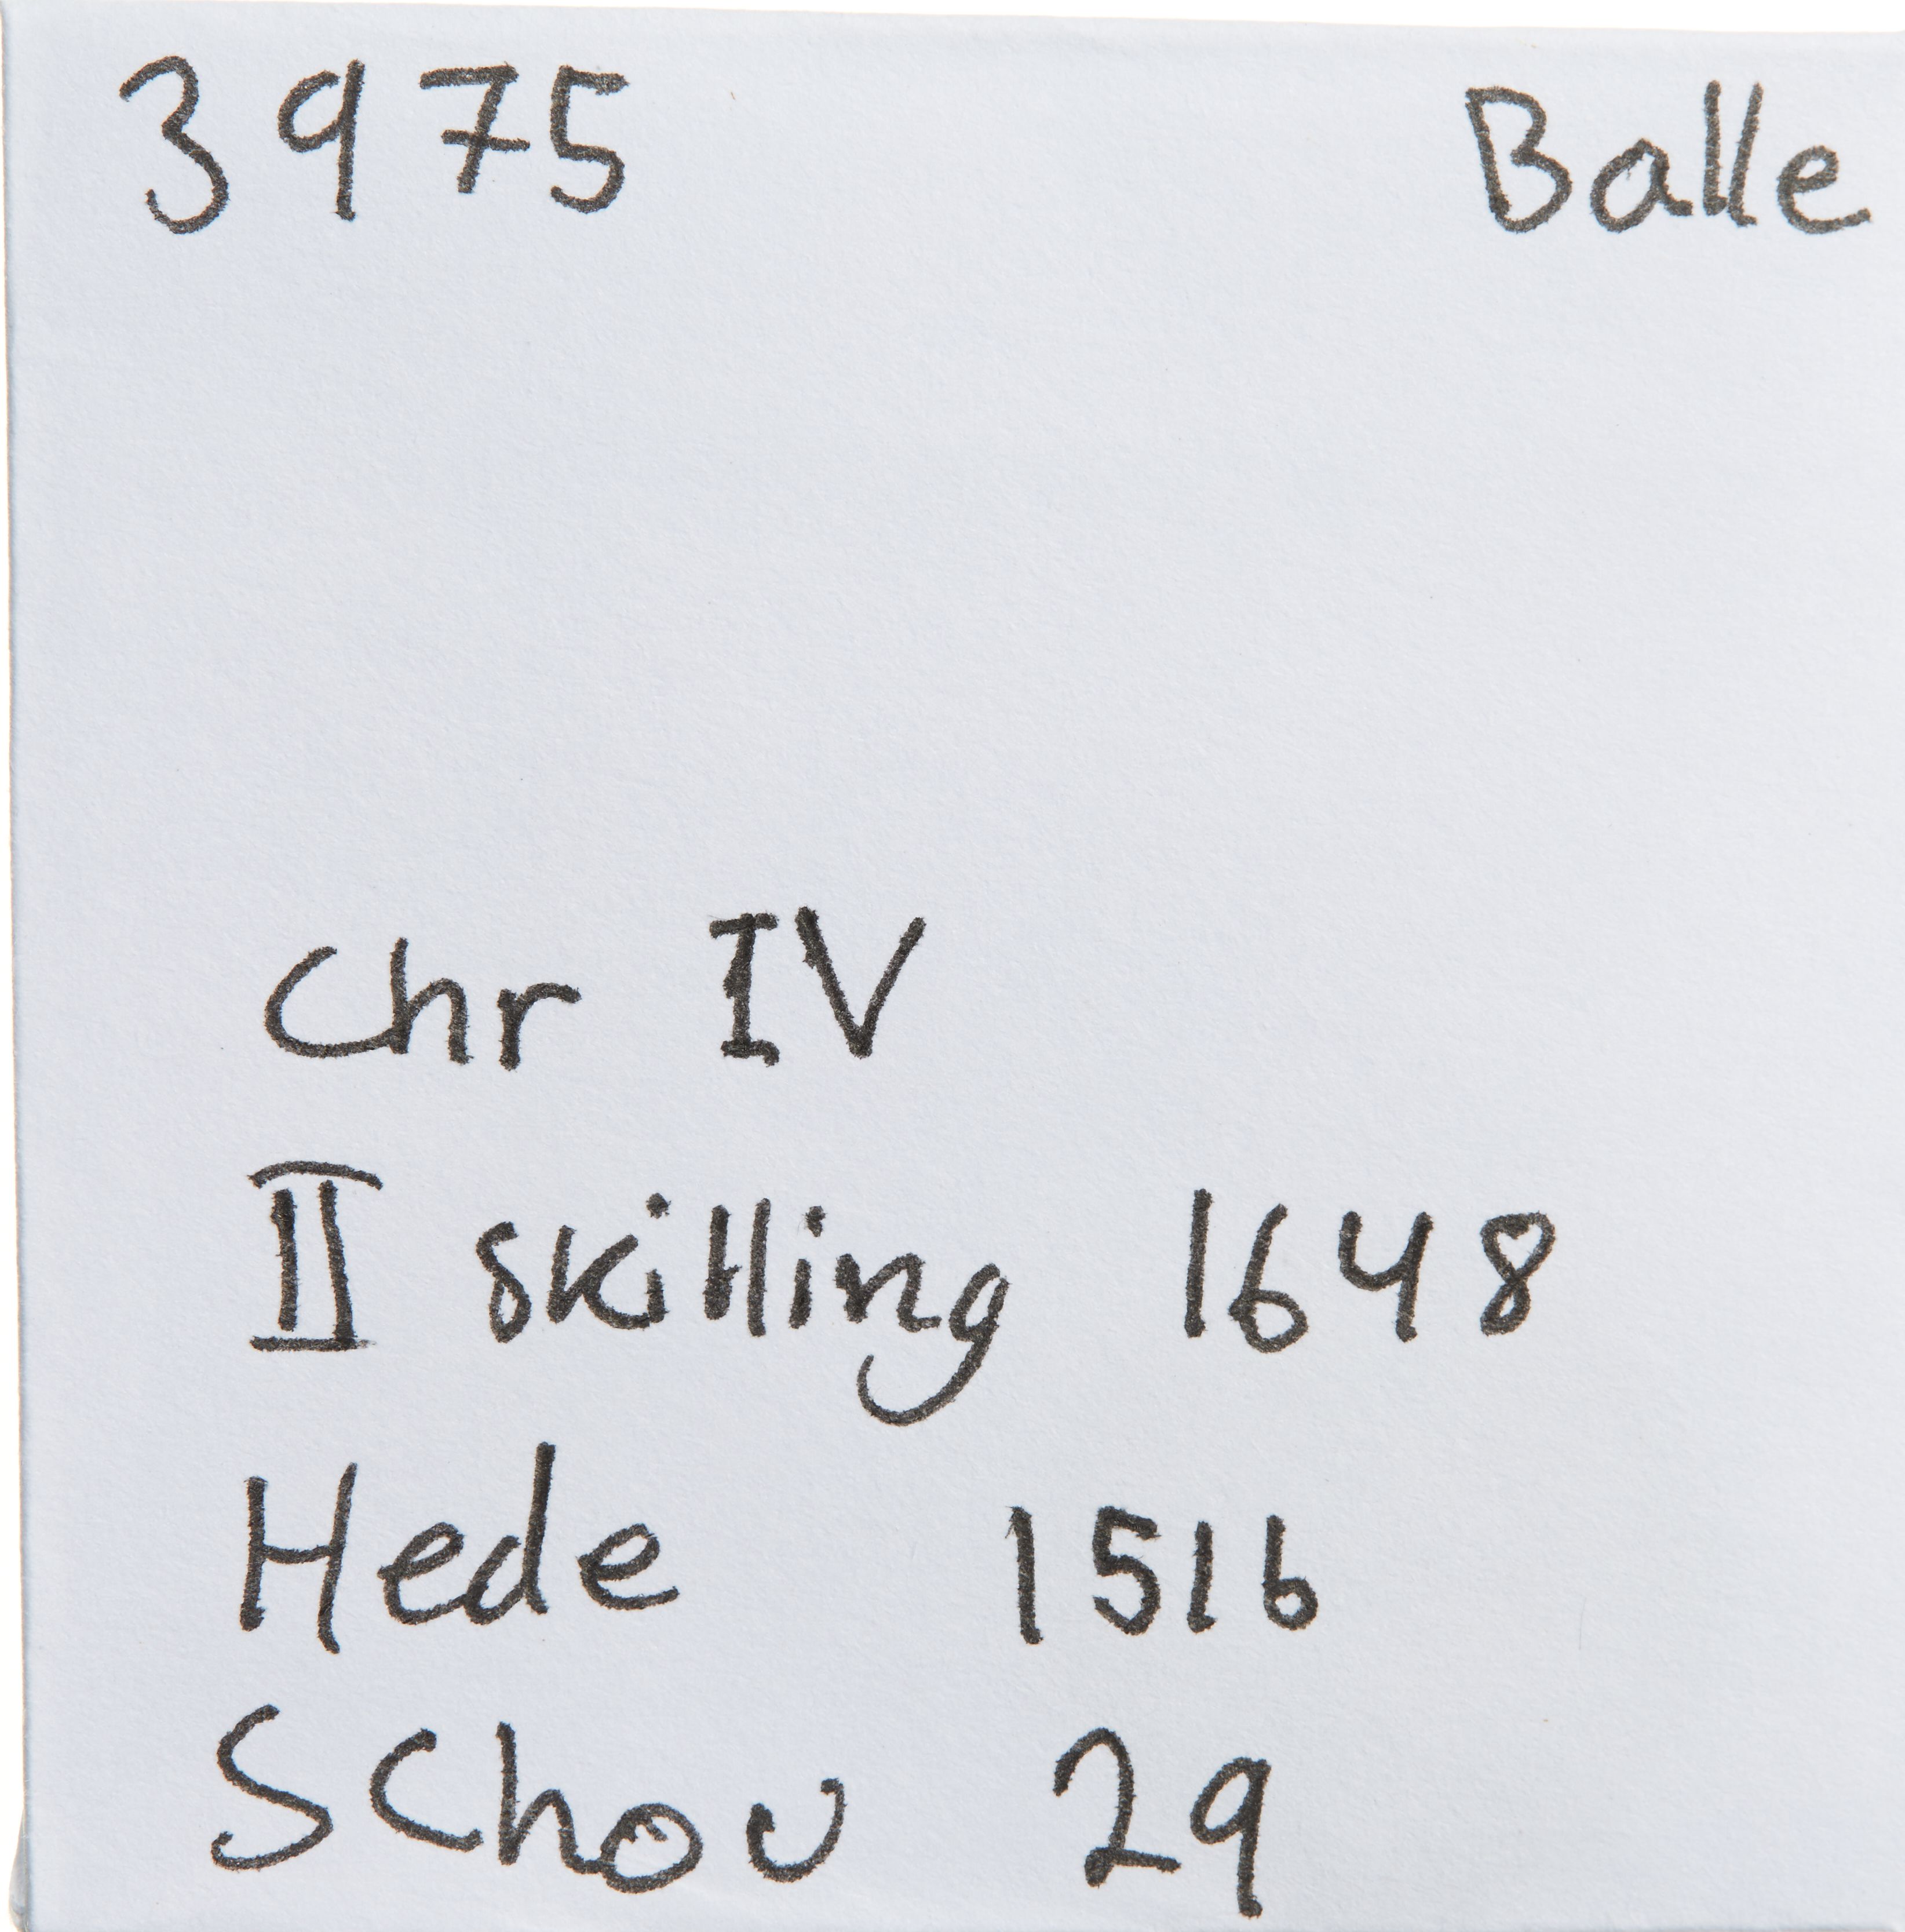 3975 Balle
Chr IV
II skilling 1648
Hede 151b
Schou 29